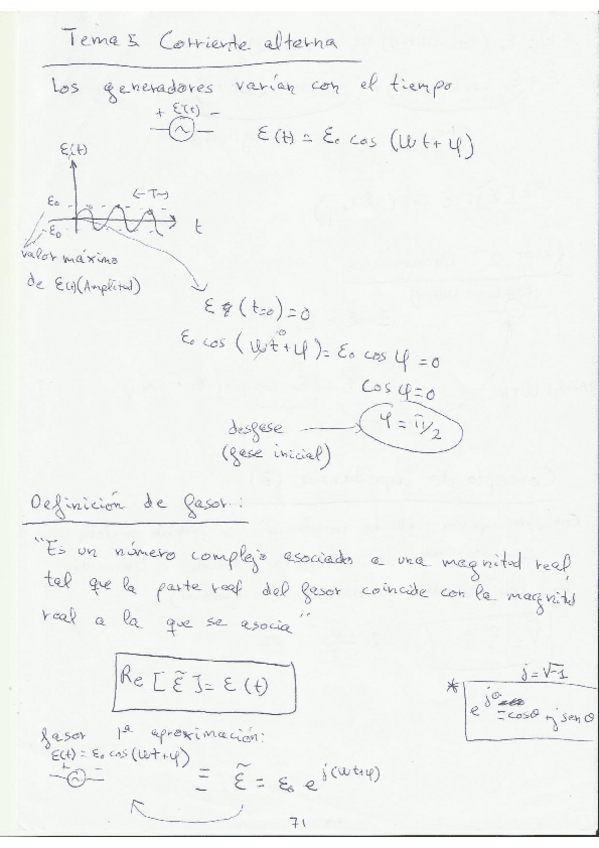 Tema 5. Corriente alterna
Los generadores varían con el tiempo
+ ε(t) −
ε(t) = ε₀ cos (ωt + φ)
ε(t)
ε₀
←T→
-ε₀
t
valor máximo
de ε(t) (Amplitud)
ε (t=0) = 0
ε₀ cos (ωt + φ) = ε₀ cos φ = 0
0
cos φ = 0
φ = π/2
desfase
(fase inicial)
Definición de fasor:
"Es un número complejo asociado a una magnitud real,
tal que la parte real del fasor coincide con la magnitud
real a la que se asocia"
Re [ε̃] = ε(t)
j = √-1
* e^jθ = cosθ + j senθ
fasor 1ª aproximación:
ε(t) = ε₀ cos (ωt + φ)
+ −
≡ ε̃ = ε₀ e^j(ωt+φ)
71